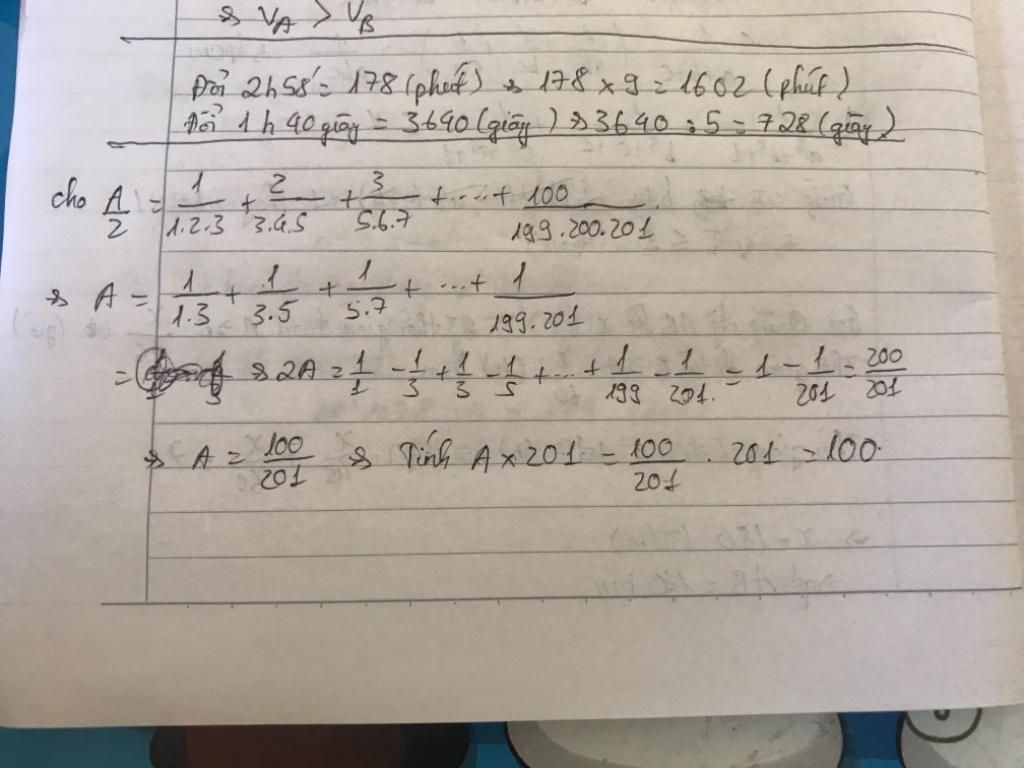 => V_A > V_B
Đổi 2h58' = 178 (phút) => 178 × 9 = 1602 (phút)
Đổi 1h 40 giây = 3640 (giây) => 3640 : 5 = 728 (giây)
cho A/2 = 1/1.2.3 + 2/3.4.5 + 3/5.6.7 + ... + 100/199.200.201
=> A = 1/1.3 + 1/3.5 + 1/5.7 + ... + 1/199.201
= => 2A = 1/1 - 1/3 + 1/3 - 1/5 + ... + 1/199 - 1/201. = 1 - 1/201 = 200/201
=> A = 100/201 => Tính A × 201 = 100/201 . 201 = 100.